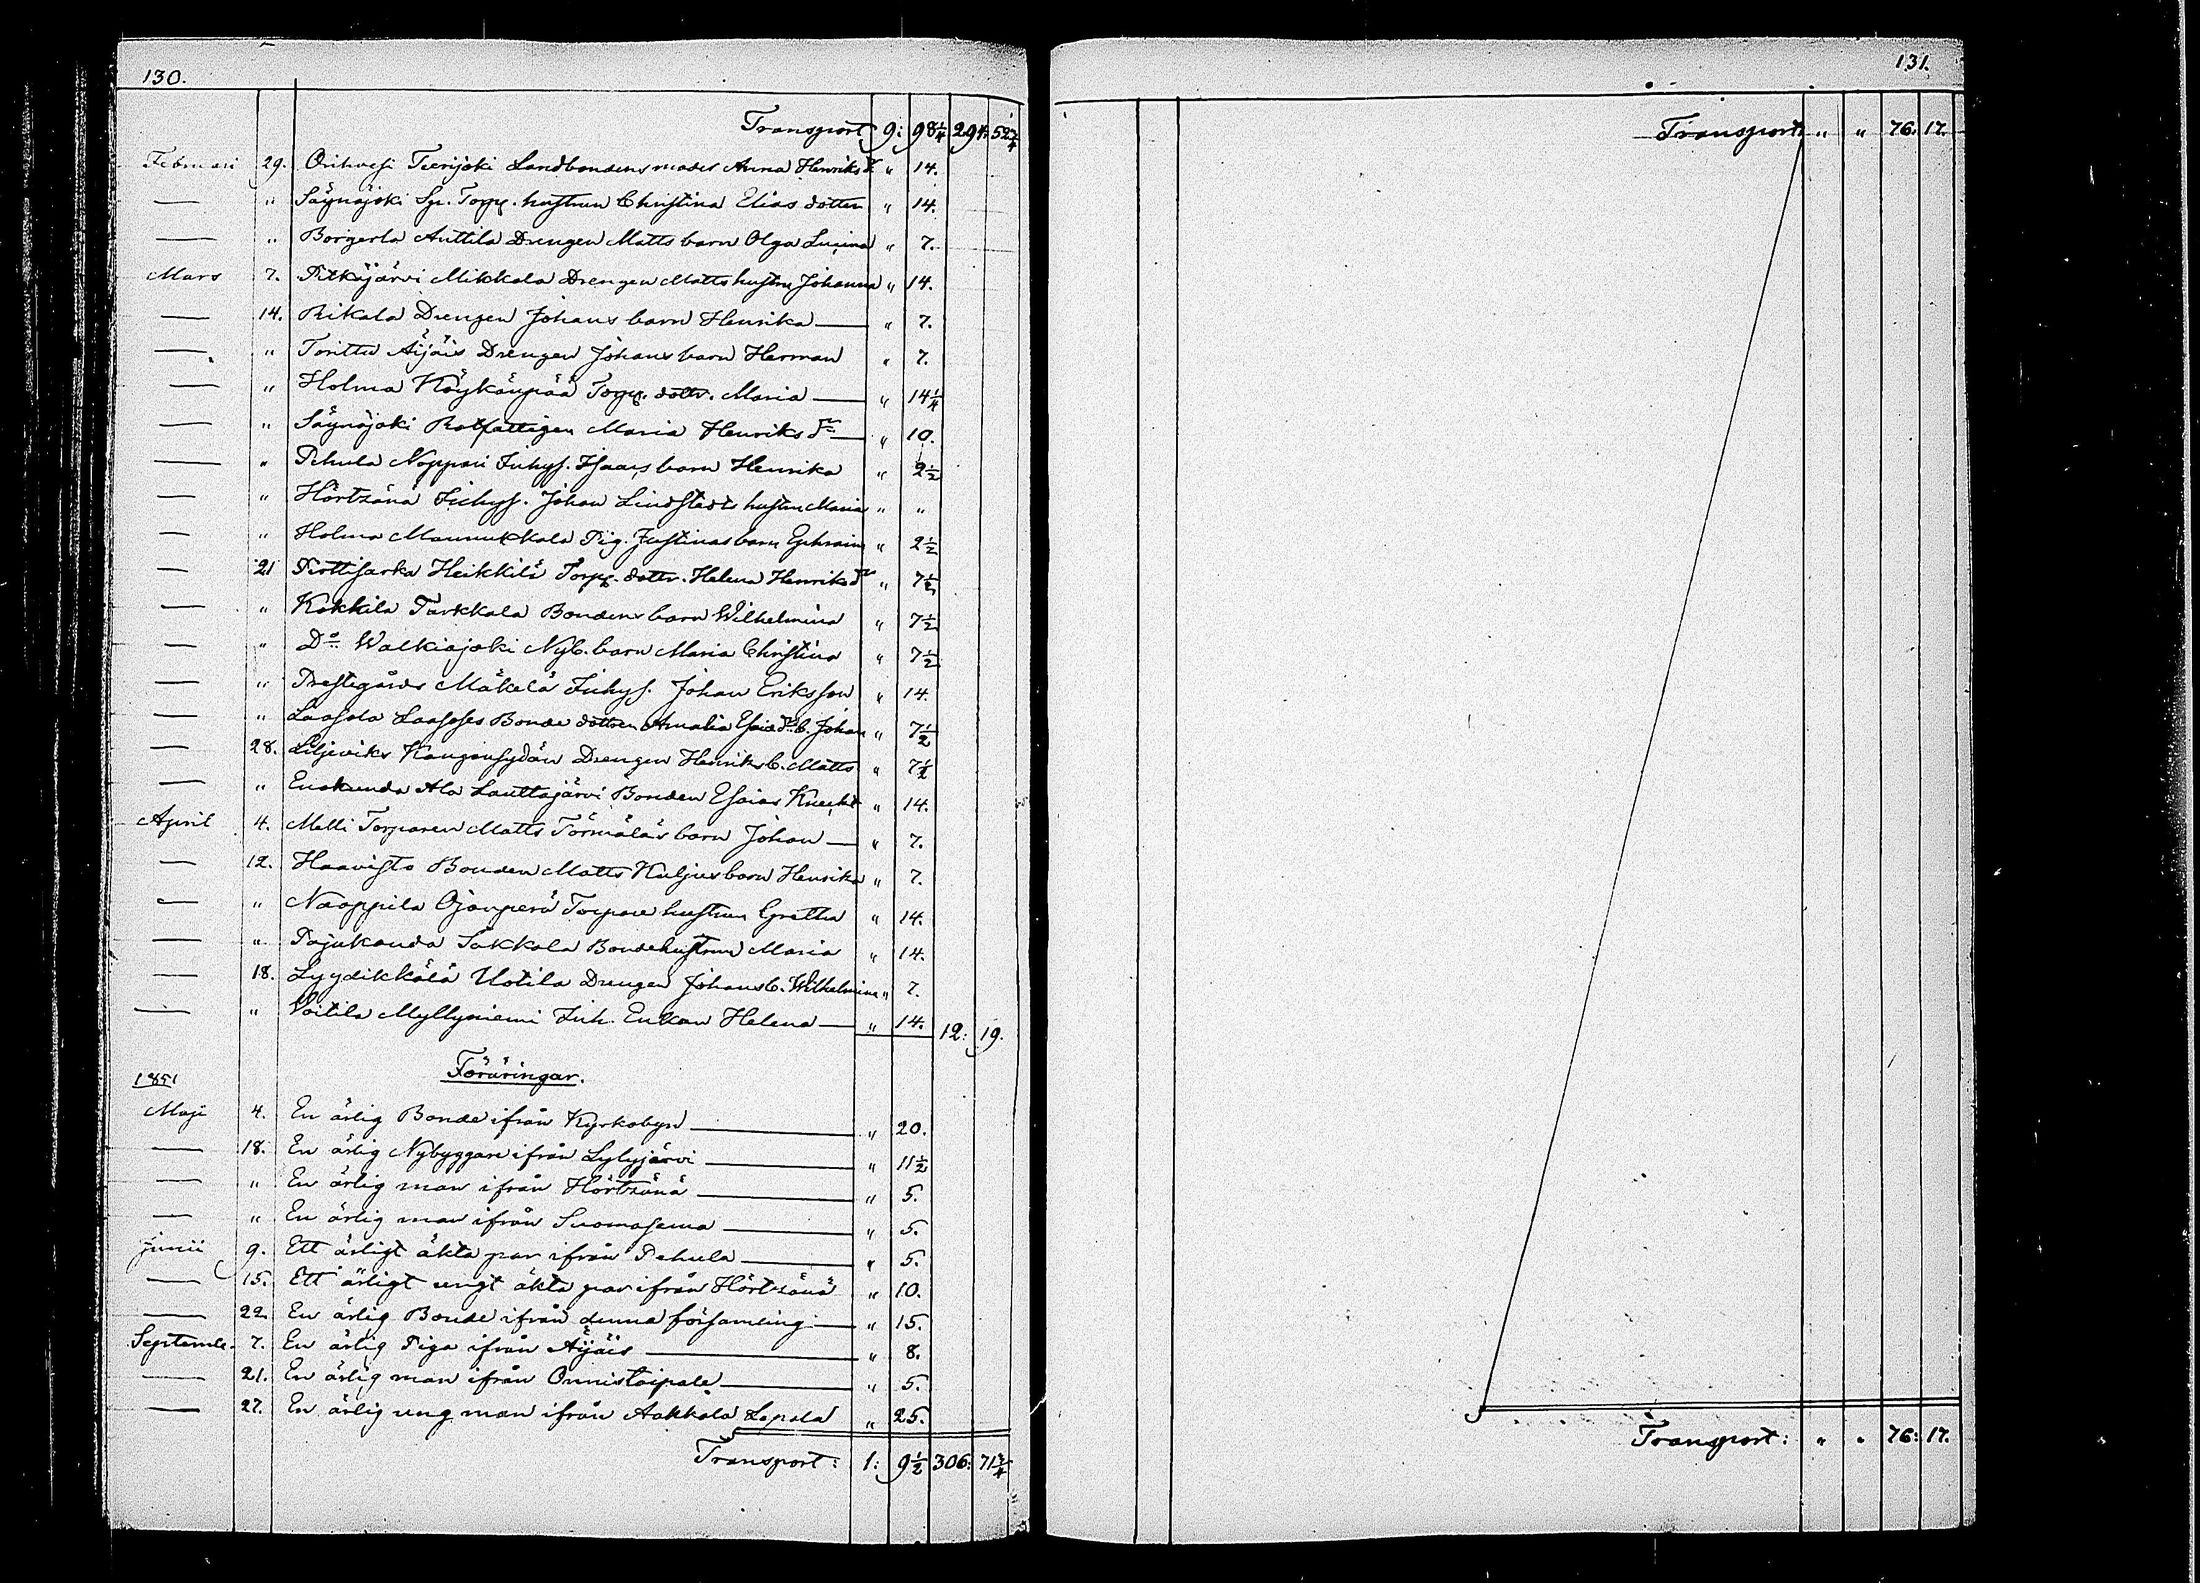 130.
Transport 9: 98 1/4 294: 52 3/4
Februari 29. Orihvesi Teerijoki Landbondens moder Anna Henriks dr " 14.
— " Säynäjoki Sn. Torp. hustrun Christina Elias dotter " 14.
— " Borgerla Anttila Drengen Matts barn Olga Lucina " 7.
Mars 7. Pitkäjärvi Mikkola Drengen Matts hustru Johanna " 14.
— 14. Rikala Drengen Johans barn Henrika — " 7.
— " Torittu Äijäis Drengen Johans barn Herman " 7.
— " Holma Köykänpää Torp. dottr. Maria — " 14 1/4
— " Säynäjoki Rotfattigen Maria Henriks dr — " 10.
— " Pehula Noppari Inhys. Isaacs barn Henrika " 2 1/2
— " Hörtzänä Inhys. Johan Lindstedts hustru Maria " "
— " Holma Mannukkala Pig. Justinas barn Ephraim " 2 1/2
— 21 Perttisarka Heikkilä Torp. dottr. Helena Henriks dr " 7 1/2
— " Kokkila Parkkala Bondens barn Wilhelmina " 7 1/2
— " Do Walkiajoki Nyb. barn Maria Christina " 7 1/2
— " Prestegårds Mäkelä Inhys. Johan Eriksson " 14.
— " Laasola Laasoses Bonde dottren Amalia Esais dr b. Johan " 7 1/2
— 28. Liljeviks Kangonsydän Drengen Henriks b. Matts " 7 1/2
— " Enokunda Ala Lauttajärvi Bonden Esaias Knecht " 14.
April 4. Melli Torparen Matts Törmäläs barn Johan — " 7.
— 12. Haavisto Bonden Matts Kuljus barn Henrika " 7.
— " Naappila Ojanperä Torpare hustrun Gretha " 14.
— " Pajukanda Sakkola Bondehustrun Maria " 14.
— 18. Lyydikkälä Uotila Drengen Johans b. Wilhelmina " 7.
— " Voitila Myllyniemi Inh. Enkan Helena — " 14. 12: 19.
Föräringar.
1851
Maji 4. En ärlig Bonde ifrån Kyrkobyn — " 20.
— 18. En ärlig Nybyggare ifrån Lylyjärvi — " 11 1/2
— " En ärlig man ifrån Hörtzänä — " 5.
— " En ärlig man ifrån Suomasema — " 5.
Junii 9. Ett ärligt äkta par ifrån Pehula — " 5.
— 15. Ett ärligt ungt äkta par ifrån Hörtzänä " 10.
— 22. En ärlig Bonde ifrån denna församling — " 15.
Septemb. 7. En ärlig Piga ifrån Äijäis — " 8.
— 21. En ärlig man ifrån Onnistaipale — " 5.
— 27. En ärlig ung man ifrån Aakkola Lapala " 25.
Transport: 1: 9 1/2 306: 71 3/4
131.
Transport: " " 76: 17.
Transport: " " 76: 17.